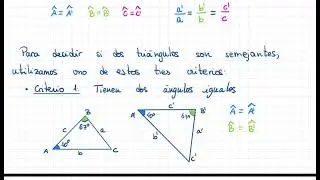 Â = Â' B̂ = B̂' Ĉ = Ĉ' a'/a = b'/b = c'/c
Para decidir si dos triángulos son semejantes,
utilizamos uno de estos tres criterios:
• Criterio 1. Tienen dos ángulos iguales
B c' B' Â = Â'
A' 60° 67°
c 67° a b' a' B̂ = B̂'
60°
A b C
C'